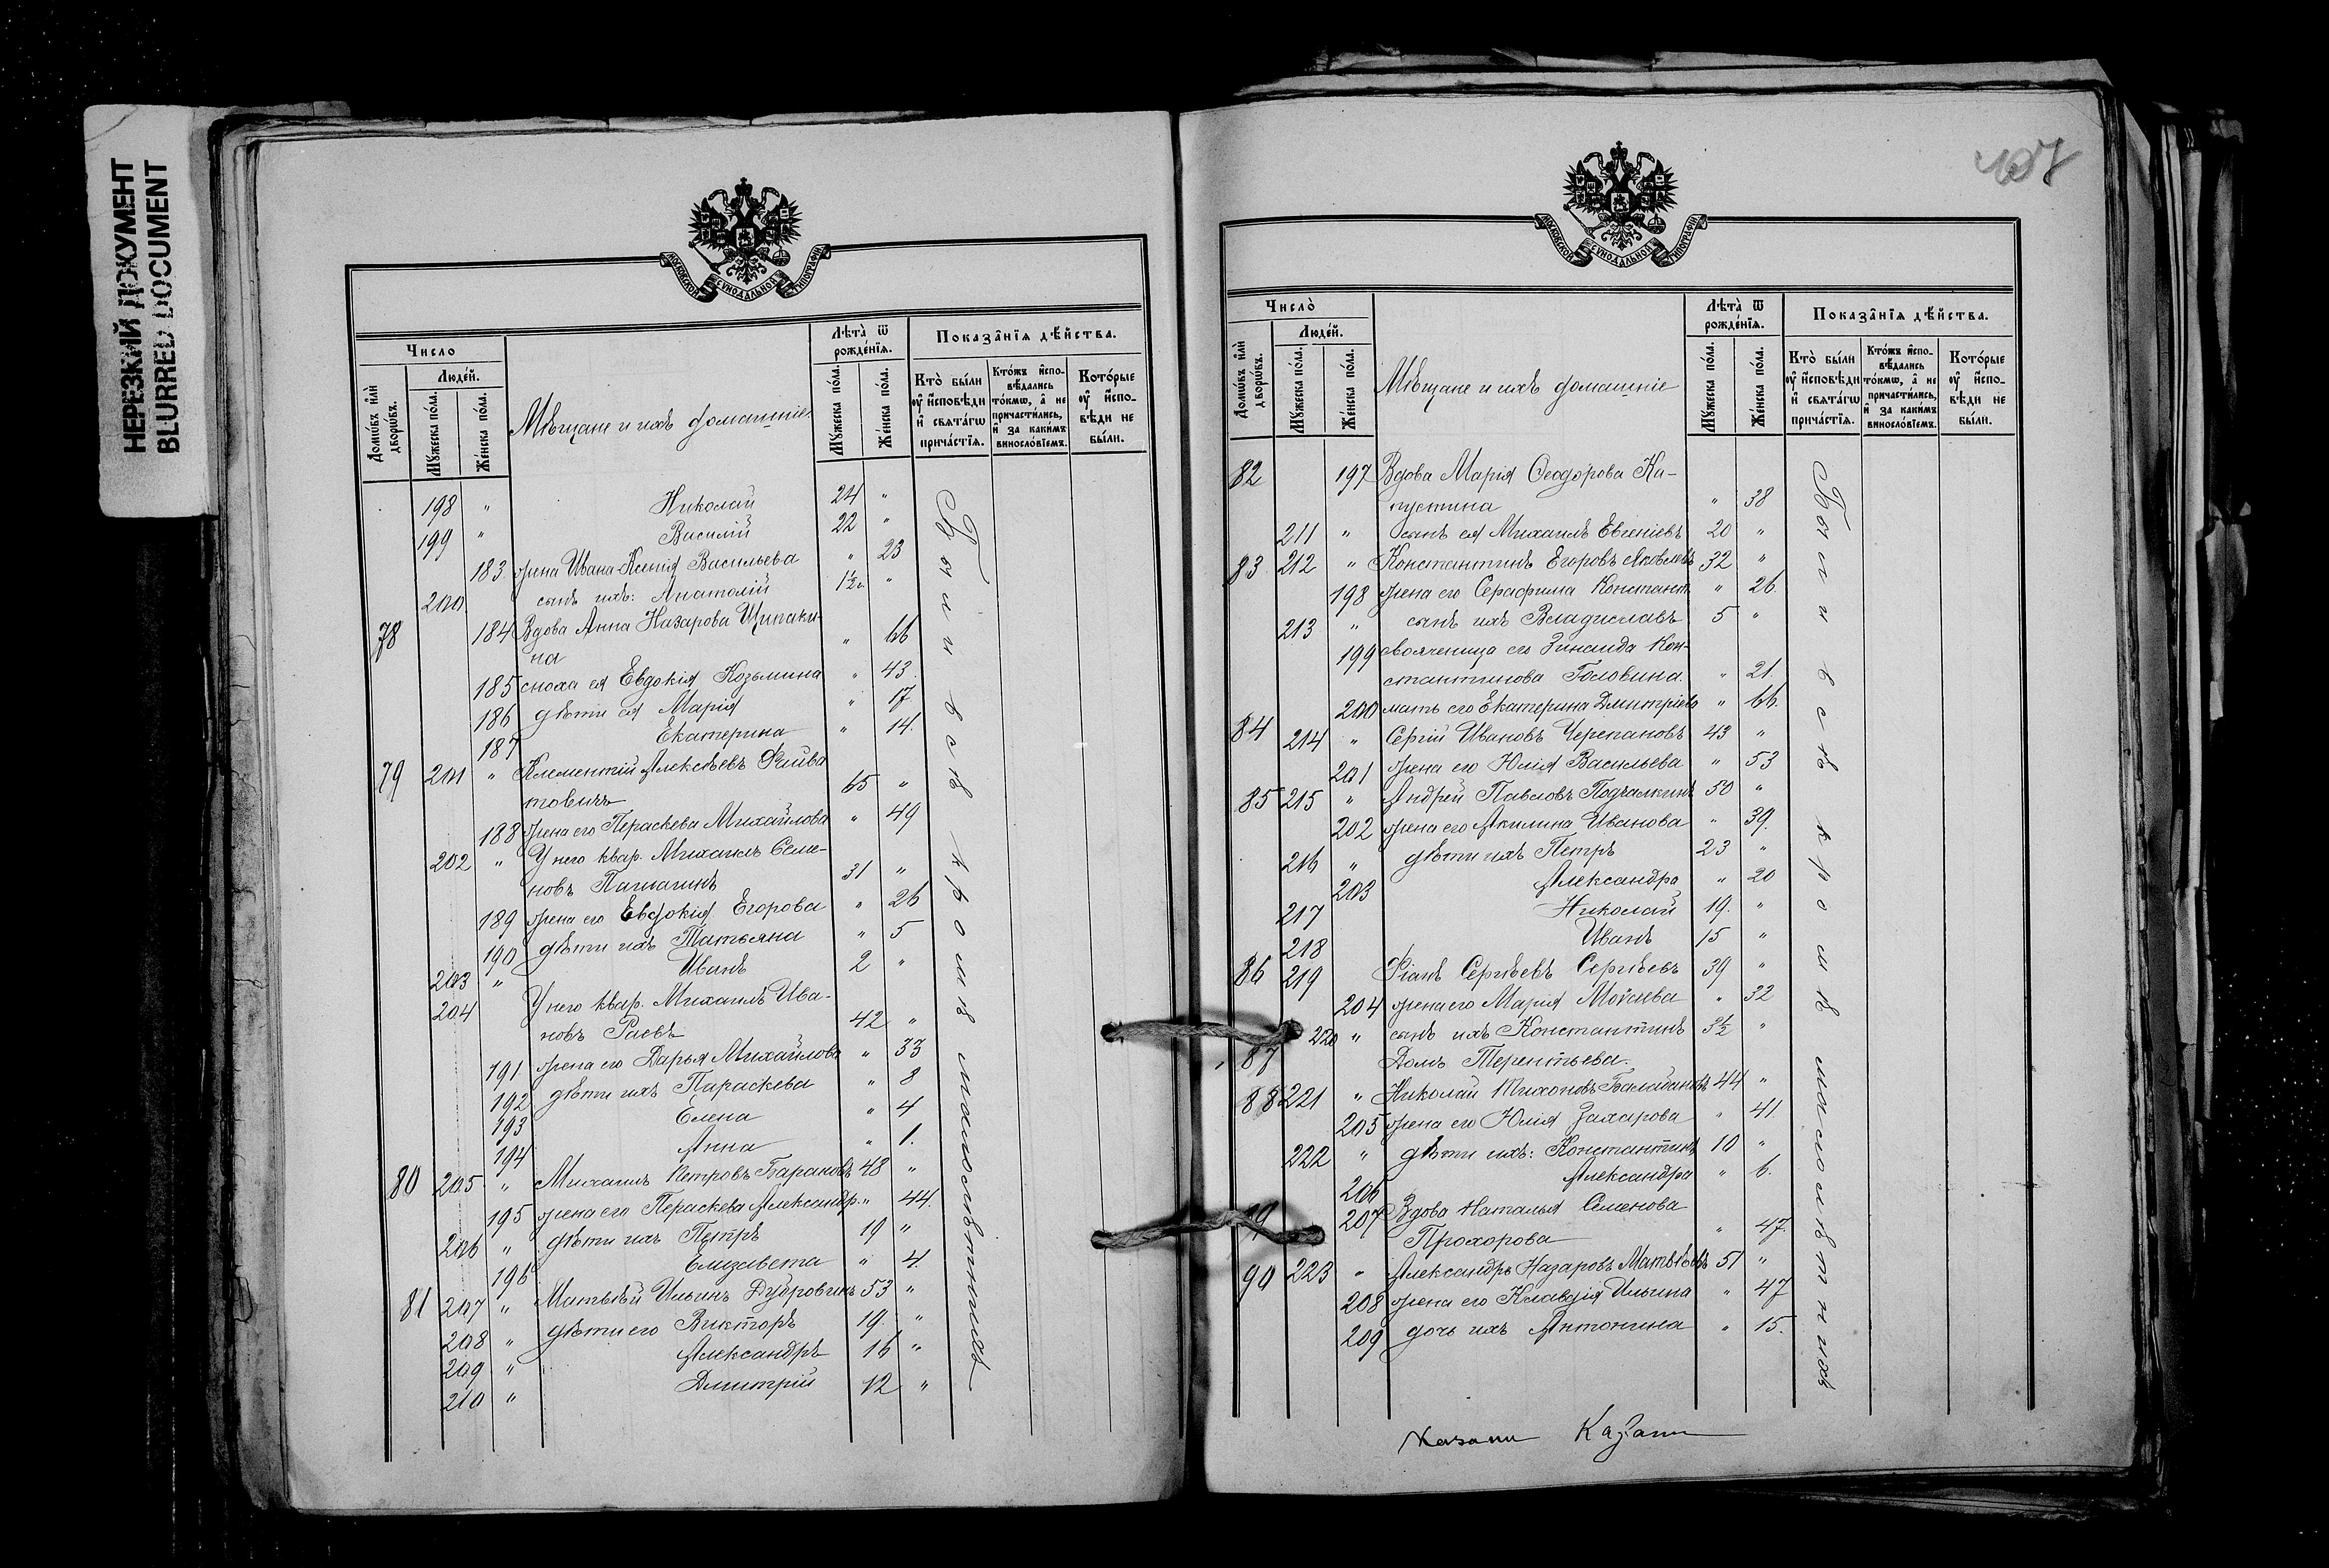 НЕРЕЗКИЙ ДОКУМЕНТ
BLURRED DOCUMENT
МОСКОВСКОЙ СѴНОДАЛЬНОЙ ТИПОГРАФІИ
Число
Людей.
Домѡвъ или дворѡвъ.
Мужеска пола.
Женска пола.
Мѣщане и ихъ домашніе.
Лѣта ѿ рожденїѧ.
Мужеска пола.
Женска пола.
Показанїѧ дѣйства.
Кто были оу исповѣди и свѧтагѡ причастїѧ.
Ктожъ исповѣдались токмѡ, а не причастились, и за какимъ винословїемъ.
Которые оу исповѣди не были.
198 " Николай 24 "
199 " Василій 22 "
183 жена Ивана Ксенія Васильева " 23
200 сынъ ихъ: Анатолій 1½ "
78 184 Вдова Анна Назарова Щипаки-
на " 66
185 сноха ея Евдокія Козьмина " 43
186 дѣти ея Марія " 17
187 Екатерина " 14.
79 201 " Клементій Алексѣевъ
товичъ 65 "
188 жена его Пераскева Михайлова " 49
202 " У него квар. Михаилъ Семе-
новъ 31 "
189 жена его Евдокія Егорова " 26
190 дѣти ихъ Татьяна " 5
203 " Иванъ 2 "
204 У него квар. Михаилъ Ива-
новъ Раевъ 42 "
191 жена его Дарья Михайлова " 33
192 дѣти ихъ Параскева " 8
193 Елена " 4
194 Анна " 1.
80 205 " Михаилъ Петровъ Барановъ 48 "
195 жена его Пераскева Александр. " 44.
206 " дѣти ихъ Петръ 19 "
196 Елизавета " 4
81 207 " Матвѣй Ильинъ Дубровинъ 53 "
208 " дѣти его Викторъ 19. "
209 " Александръ 16 "
210 " Дмитрій 12 "
Были всѣ кромѣ малолѣтнихъ
407
МОСКОВСКОЙ СѴНОДАЛЬНОЙ ТИПОГРАФІИ
Число
Людей.
Домѡвъ или дворѡвъ.
Мужеска пола.
Женска пола.
Мѣщане и ихъ домашніе
Лѣта ѿ рожденїѧ.
Мужеска пола.
Женска пола.
Показанїѧ дѣйства.
Кто были оу исповѣди и свѧтагѡ причастїѧ.
Ктожъ исповѣдались токмѡ, а не причастились, и за какимъ винословїемъ.
Которые оу исповѣди не были.
82 197 Вдова Марія Ѳеодорова Ка-
пустина " 38
211 " сынъ ея Михаилъ Евгеніевъ 20 "
83 212 " Константинъ Егоровъ Яковлевъ 32 "
198 жена его Серафима Констант. " 26.
213 " сынъ ихъ Владиславъ 5 "
199 своячeница его Зинаида Кон-
стантинова Головина. " 21
200 мать его Екатерина Дмитріева " 66.
84 214 " Сергій Ивановъ Черепановъ 43 "
201 жена его Юлія Васильева " 53
85 215 " Андрей Павловъ Подчалкинъ 50 "
202 жена его Акилина Иванова " 39.
216 " дѣти ихъ Петръ 23 "
203 Александра " 20
217 Николай 19. "
218 Иванъ 15 "
86 219 Сергѣевъ Сергѣевъ 39 "
204 жена его Марія Моисеева " 32
220 " сынъ ихъ Константинъ 3½ "
87 Домъ Терентьева.
88 221 " Николай Тихоновъ 44 "
205 жена его Юлія Захарова " 41
222 " дѣти ихъ: Константинъ 10 "
206 Александра " 6.
207 Вдова Наталья Семенова
Прохорова " 47.
90 223 " Александръ Назаровъ Матвѣевъ 51 "
208 жена его Клавдія Ильина " 47
209 дочь ихъ Антонина " 15.
Были всѣ кромѣ малолѣтнихъ
Казани